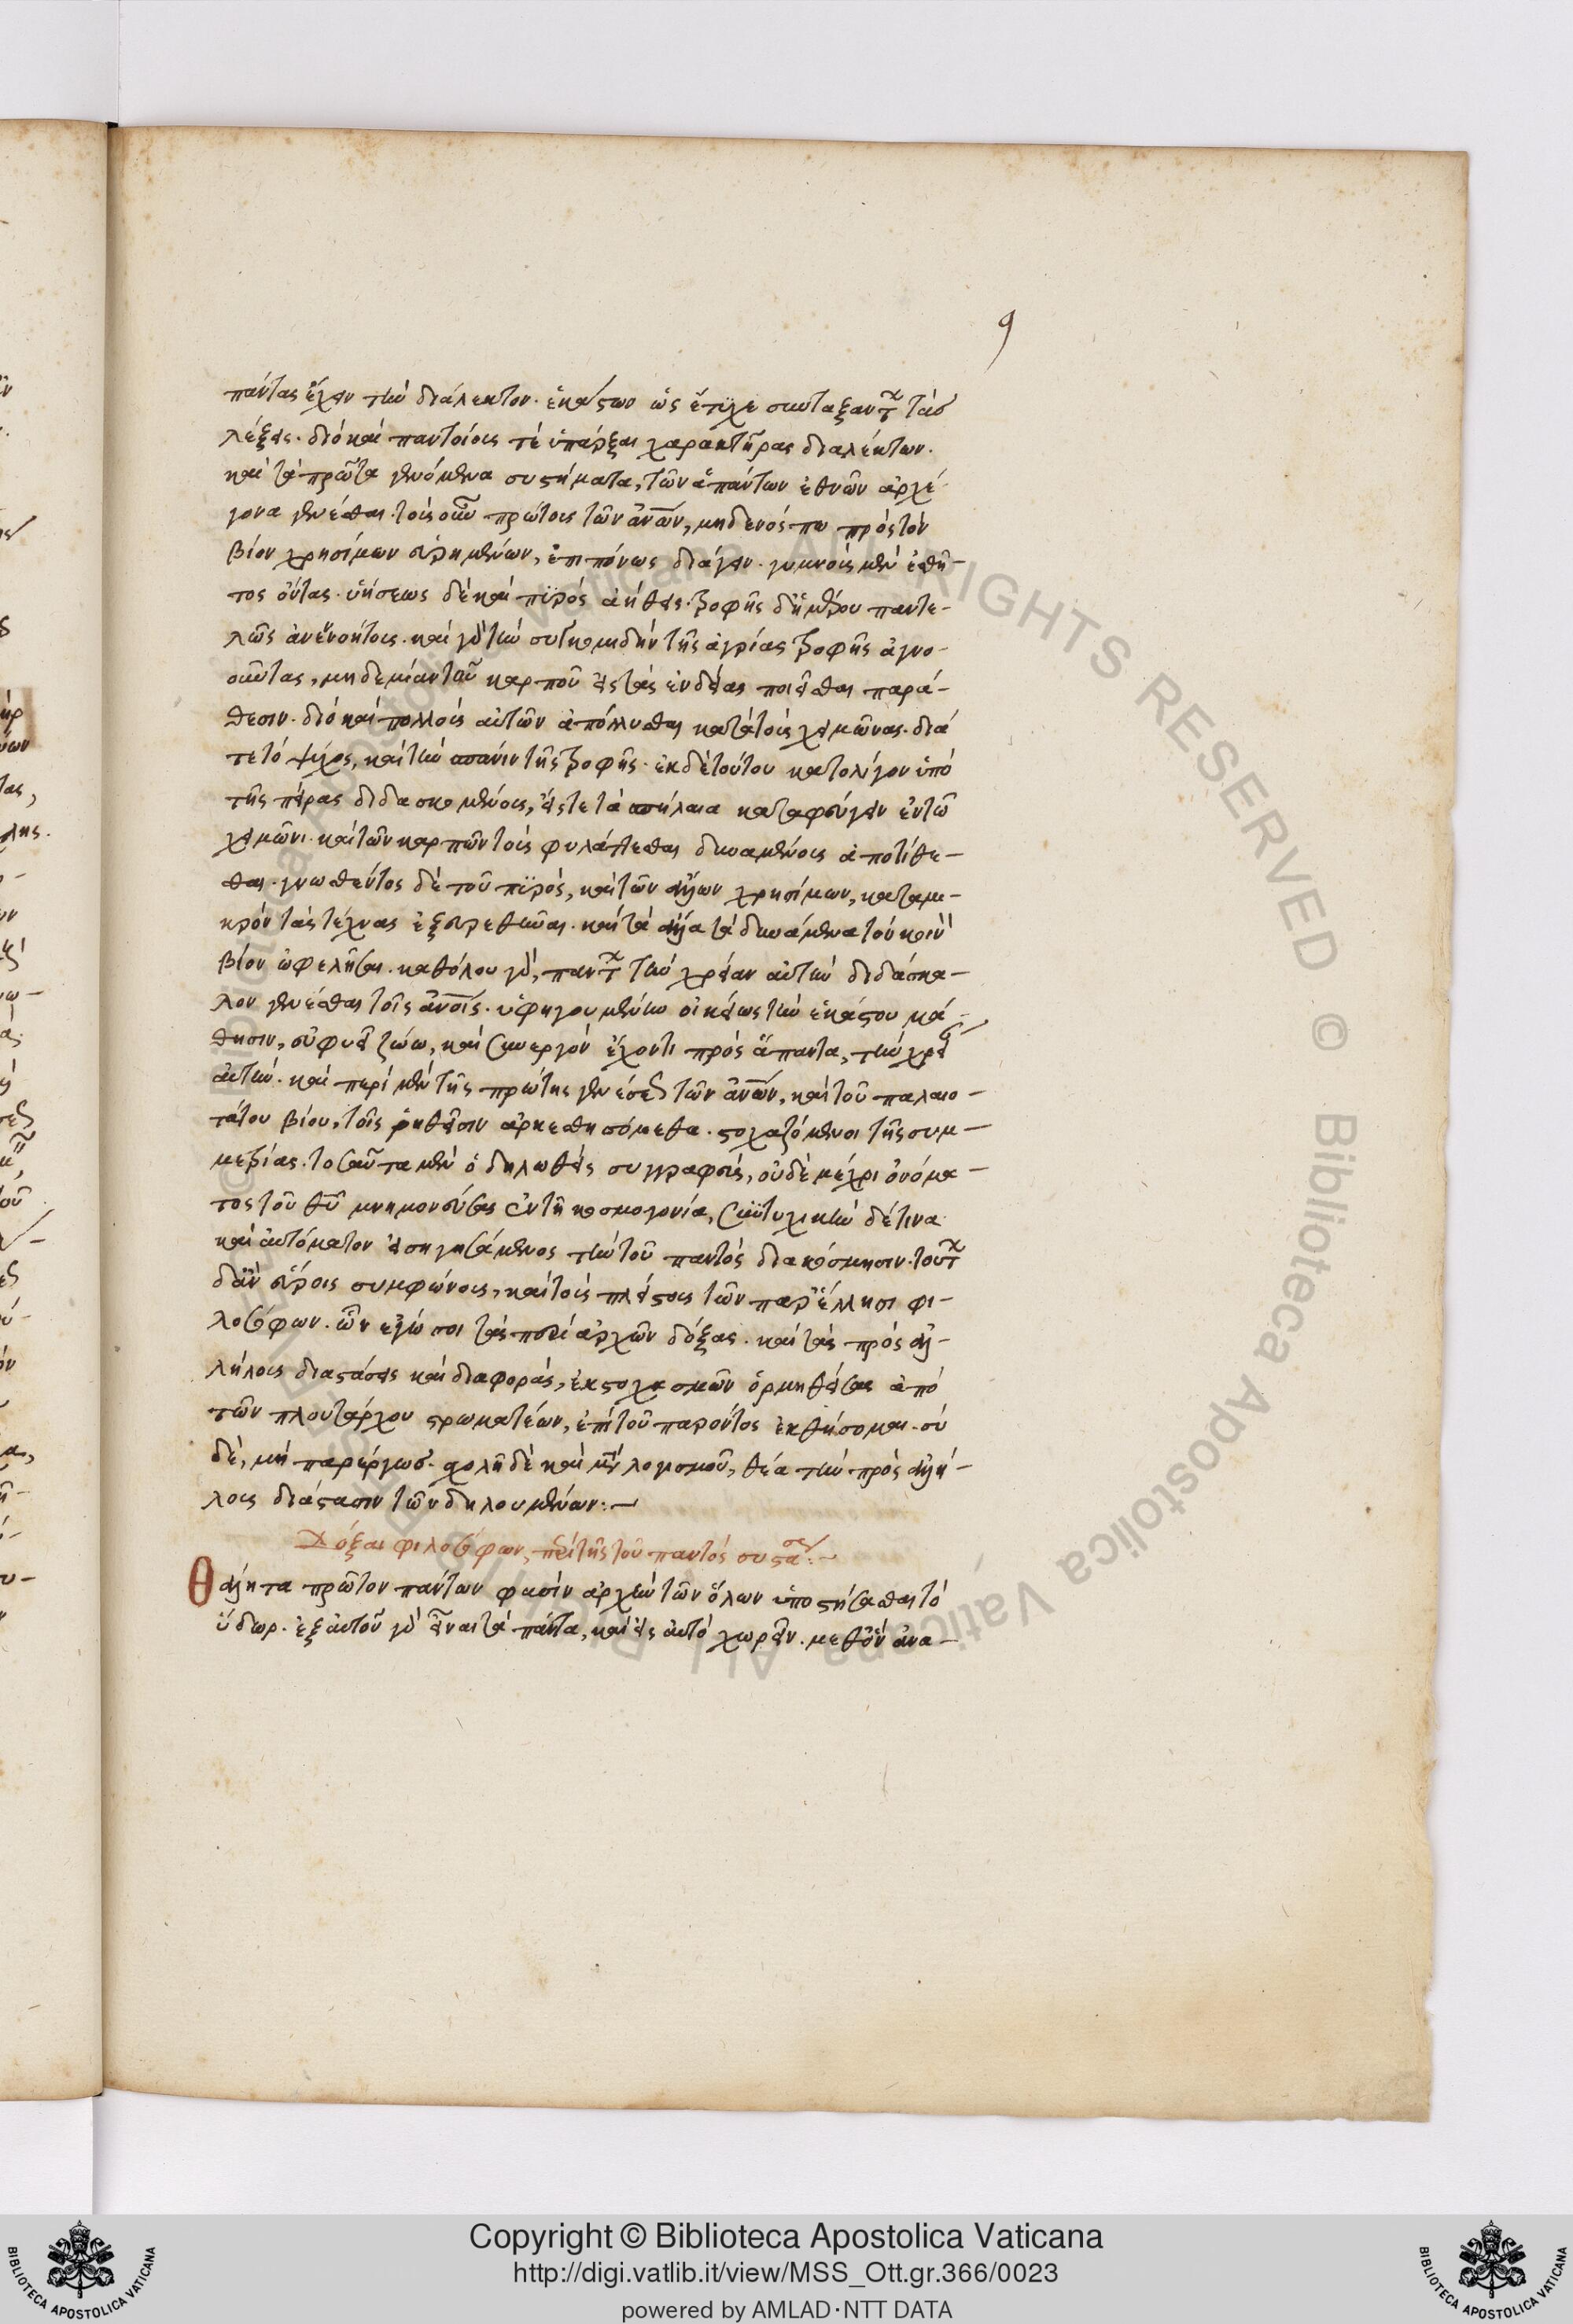 9
πάντας ἔχειν τὴν διάλεκτον. ἑκάστων ὡς ἔτυχε συνταξάντων τὰς
λέξεις. διὸ καὶ παντοίους τὲ ὑπάρξαι χαρακτῆρας διαλέκτων.
καὶ τὰ πρῶτα γενόμενα συστήματα, τῶν ἁπάντων ἐθνῶν ἀρχέ-
γονα γενέσθαι. τοὺς οὖν πρώτους τῶν ἀνῶν, μηδενός πω πρὸς τὸν
βίον χρησίμων εὑρημένων, ἐπιπόνως διάγειν. γυμνοὺς μὲν ἐσθῆ-
τος ὄντας. οἰκήσεως δὲ καὶ πυρὸς ἀήθεις. τροφῆς δ' ἡμέρου παντε-
λῶς ἀνεννοήτους. καὶ γὰρ τὴν συγκομιδὴν τῆς ἀγρίας τροφῆς ἀγνο-
οῦντας, μηδεμίαν τοῦ καρποῦ εἰς τὰς ἐνδείας ποιεῖσθαι παρά-
θεσιν. διὸ καὶ πολλοὺς αὐτῶν ἀπόλλυσθαι κατὰ τοὺς χειμῶνας. διά
τε τὸ ψύχος, καὶ τὴν σπάνιν τῆς τροφῆς. ἐκ δὲ τούτου κατολίγον ὑπὸ
τῆς πείρας διδασκομένους, εἴς τε τὰ σπήλαια καταφεύγειν ἐν τῷ
χειμῶνι. καὶ τῶν καρπῶν τοὺς φυλάττεσθαι δυναμένους ἀποτίθε-
σθαι. γνωσθέντος δὲ τοῦ πυρὸς, καὶ τῶν ἄλλων χρησίμων, καταμι-
κρὸν τὰς τέχνας ἐξευρεθῆναι. καὶ τὰ ἄλλα τὰ δυνάμενα τὸν κοινὸν
βίον ὠφελῆσαι. καθόλου γὰρ, πάντων τὴν χρείαν αὐτὴν διδάσκα-
λον γενέσθαι τοῖς ἀνοις. ὑφηγουμένην οἰκείως τὴν ἑκάστου μά-
θησιν, εὐφυεῖ ζώω, καὶ συνεργὸν ἔχοντι πρὸς ἅπαντα, τὴν χρείαν
αὐτήν. καὶ περὶ μὲν τῆς πρώτης γενέσεως τῶν ἀνῶν, καὶ τοῦ παλαιο-
τάτου βίου, τοῖς ῥηθεῖσιν ἀρκεσθησόμεθα. στοχαζόμενοι τῆς συμ-
μετρίας. τοσαῦτα μὲν ὁ δηλωθεὶς συγγραφεύς, οὐδὲ μέχρι ὀνόμα-
τος τοῦ θυ μνημονεύσας ἐν τῇ κοσμογονία, συντυχικὴν δέ τινα
καὶ αὐτόματον εἰσηγησάμενος τὴν τοῦ παντὸς διακόσμησιν. τούτοις
δ' ἂν εὕροις συμφώνους, καὶ τοὺς πλείστους τῶν παρ' ἕλλησι φι-
λοσόφων. ὧν ἐγώ σοι τὰς περὶ ἀρχῶν δόξας. καὶ τὰς πρὸς ἀλ-
λήλους διαστάσεις καὶ διαφοράς, ἐκ στοχασμῶν ὁρμηθείσας ἀπὸ
τῶν πλουτάρχου στρωματέων, ἐπὶ τοῦ παρόντος ἐκθήσομαι. σὺ
δὲ, μὴ παρέργως. σχολῇ δὲ καὶ μετὰ λογισμοῦ, θέα τὴν πρὸς ἀλλή-
λους διάστασιν τῶν δηλουμένων:—
Δόξαι φιλοσόφων, περὶ τῆς τοῦ παντὸς συστάσεως:~
Θάλητα πρῶτον πάντων φασὶν ἀρχὴν τῶν ὅλων ὑποστήσασθαι τὸ
ὕδωρ. ἐξ αὐτοῦ γὰρ εἶναι τὰ πάντα, καὶ εἰς αὐτὸ χωρεῖν. μεθ' ὃν ἀνα-
Copyright © Biblioteca Apostolica Vaticana
http://digi.vatlib.it/view/MSS_Ott.gr.366/0023
powered by AMLAD·NTT DATA
BIBLIOTECA APOSTOLICA VATICANA
BIBLIOTECA APOSTOLICA VATICANA